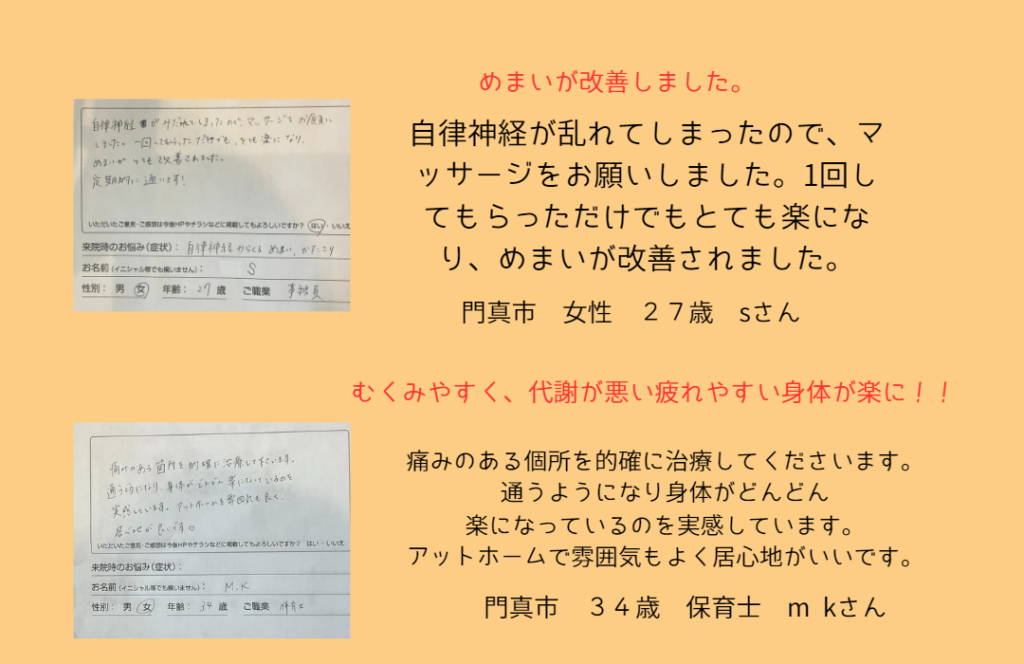 めまいが改善しました。
自律神経が乱れてしまったので、マ
ッサージをお願いしました。1回し
てもらっただけでもとても楽にな
り、めまいが改善されました。
門真市 女性 27歳 sさん
自律神経がみだれてしまったので、マッサージをお願い
しました。一回してもらっただけでも、とても楽になり、
めまいがとても改善されました。
定期的に通います!
いただいたご意見・ご感想は今後HPやチラシなどに掲載してもよろしいですか? はい・いいえ
来院時のお悩み(症状): 自律神経からくるめまい、かたこり
お名前(イニシャル等でも構いません): S
性別: 男 女 年齢: 27 歳 ご職業 事務員
むくみやすく、代謝が悪い疲れやすい身体が楽に!!
痛みのある個所を的確に治療してくださいます。
通うようになり身体がどんどん
楽になっているのを実感しています。
アットホームで雰囲気もよく居心地がいいです。
門真市 34歳 保育士 m kさん
痛みのある箇所を的確に治療して下さいます。
通うようになり、身体がどんどん楽になっているのを
実感しています。アットホームな雰囲気も良く、
居心地が良いです。
いただいたご意見・ご感想は今後HPやチラシなどに掲載してもよろしいですか? はい・いいえ
来院時のお悩み(症状):
お名前(イニシャル等でも構いません): M.K
性別: 男 女 年齢: 34 歳 ご職業 保育士